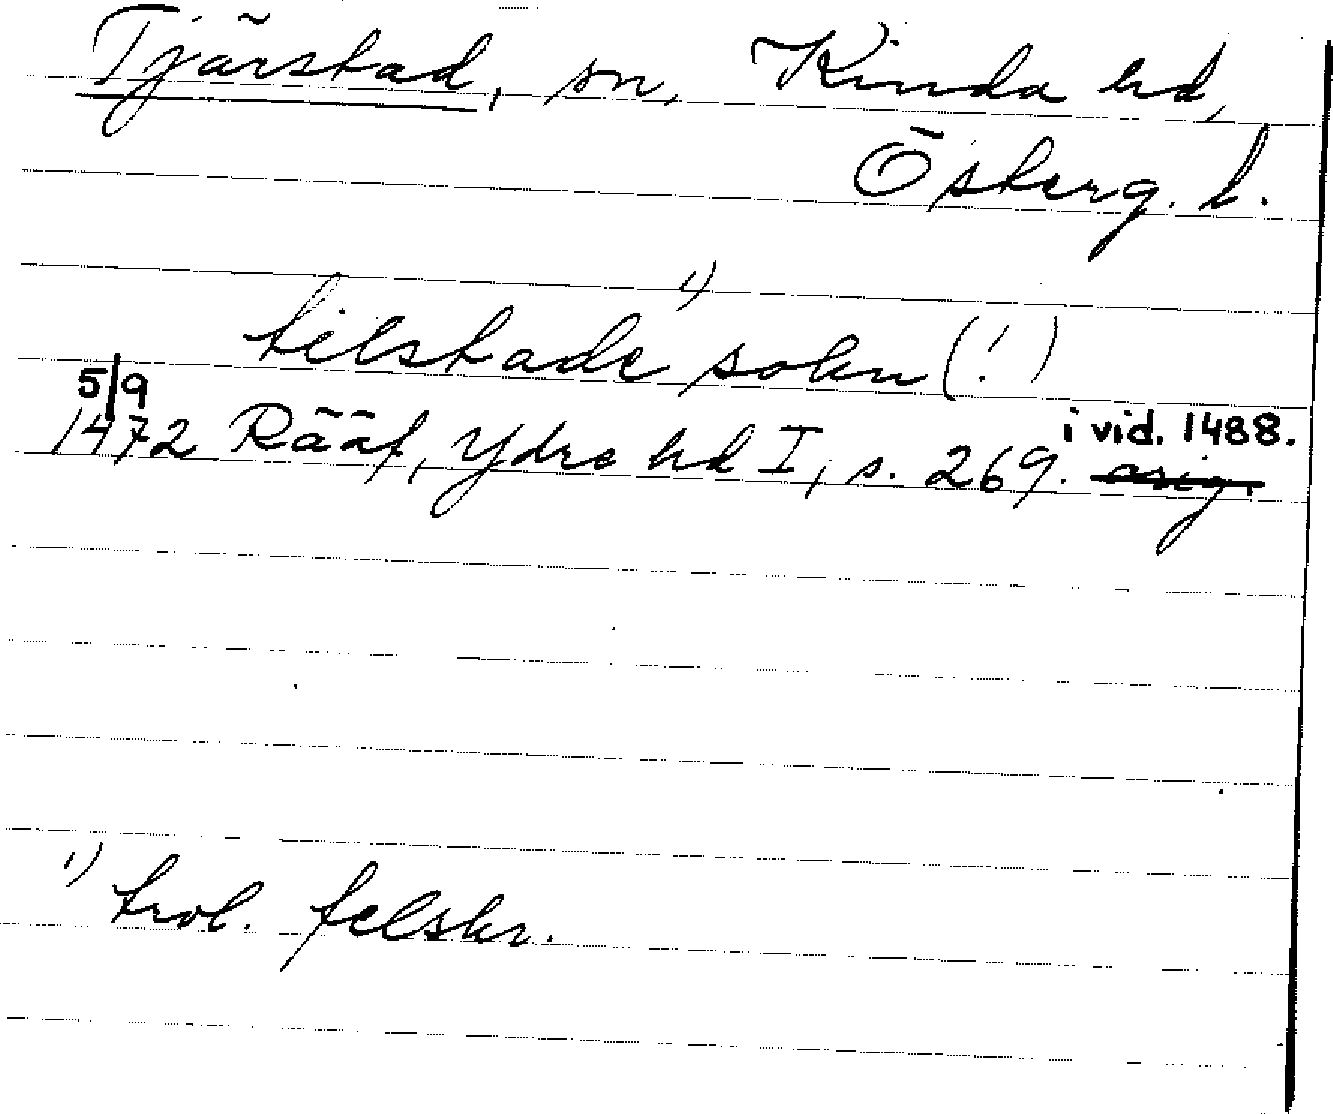 Tjärstad, sn, Kinda hd,
Österg. l.
tilstade ¹⁾ sokn (!)
5/9
1472 Rääf, Ydre hd I, s. 269. orig.
i vid. 1488.
¹⁾ trol. felskr.